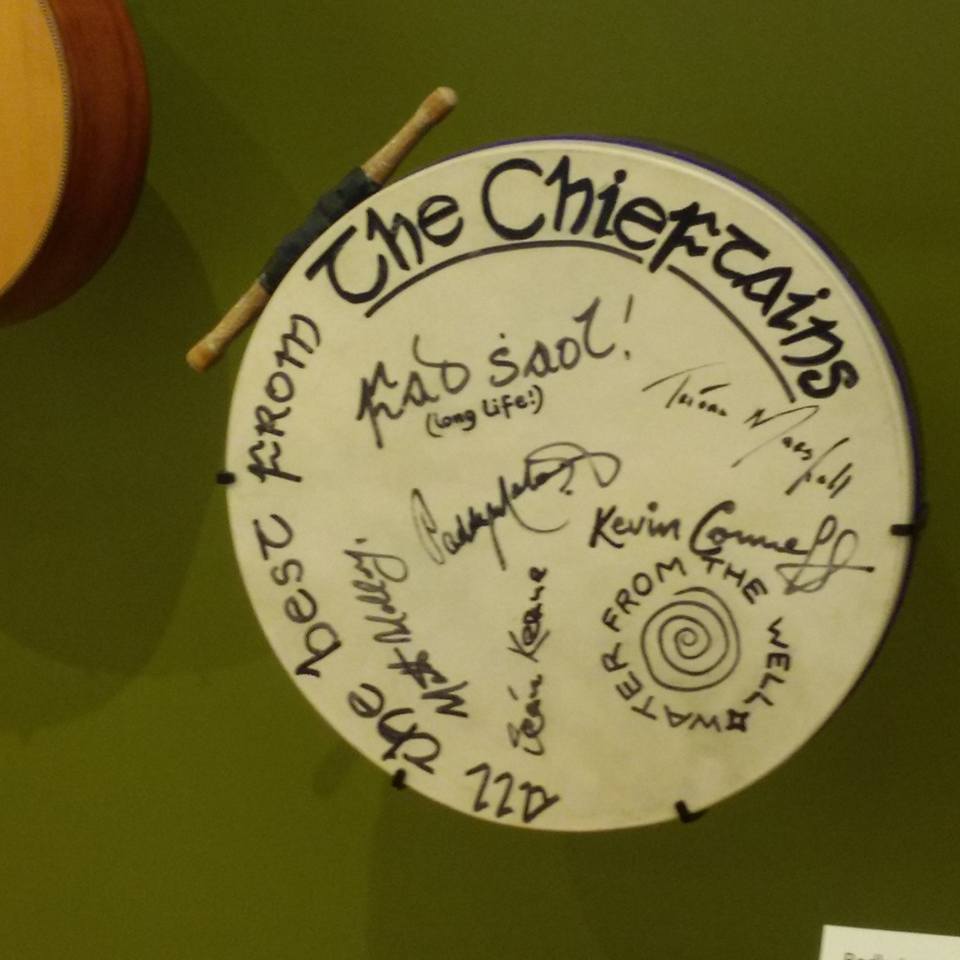 All the best from The Chieftains
Fad ṡaol!
(long life!)
Tríona Marshall
Paddy Moloney
Kevin Conneff
Matt Molloy.
Seán Keane
WATER FROM THE WELL